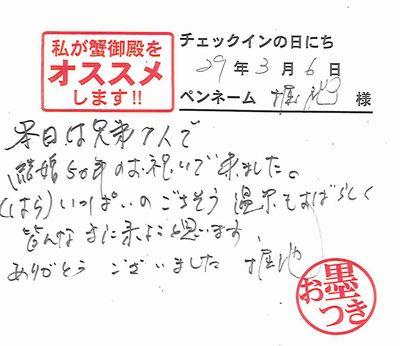 私が蟹御殿を
オススメ
します!!
チェックインの日にち
29年3月6日
ペンネーム 堀池 様
本日は兄弟7人で
結婚50年のお祝いで来ました。
(はら)いっぱいのごちそう 温泉もすばらしく
皆んなまた来ようと思います
ありがとう ございました 堀池
お墨つき